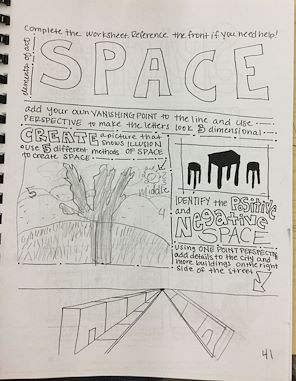 Complete the worksheet. Reference the front if you need help!
elements of art
SPACE
add your own VANISHING POINT to the line and use
PERSPECTIVE to make the letters look 3 dimensional
CREATE a picture that
shows ILLUSION
use 5 different methods of SPACE
to create SPACE
5
middle
4
IDENTIFY the POSITIVE
and
NEGATIVE
SPACE
Using ONE POINT PERSPECTIVE
add details to the city and
more buildings on the right
side of the street
41